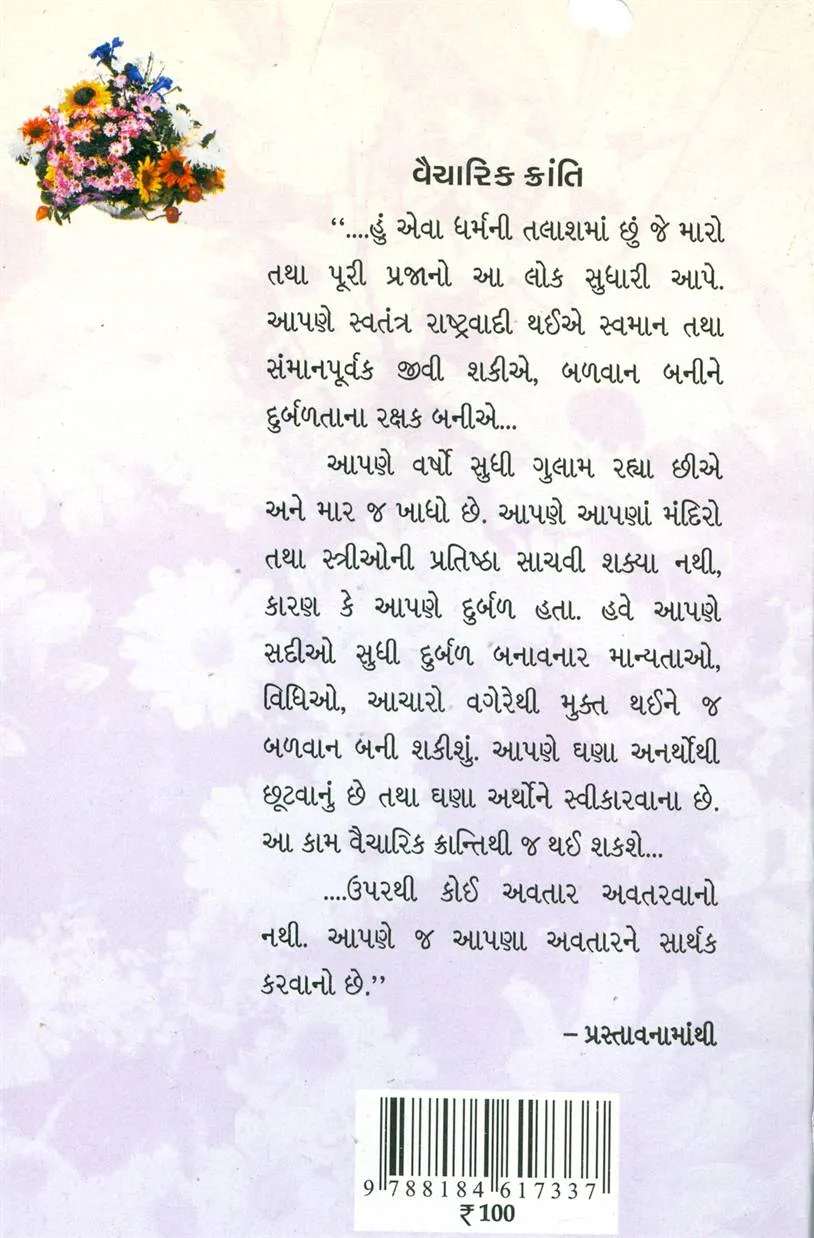 વૈચારિક ક્રાંતિ
“....હું એવા ધર્મની તલાશમાં છું જે મારો
તથા પૂરી પ્રજાનો આ લોક સુધારી આપે.
આપણે સ્વતંત્ર રાષ્ટ્રવાદી થઈએ સ્વમાન તથા
સંમાનપૂર્વક જીવી શકીએ, બળવાન બનીને
દુર્બળતાના રક્ષક બનીએ...
આપણે વર્ષો સુધી ગુલામ રહ્યા છીએ
અને માર જ ખાધો છે. આપણે આપણાં મંદિરો
તથા સ્ત્રીઓની પ્રતિષ્ઠા સાચવી શક્યા નથી,
કારણ કે આપણે દુર્બળ હતા. હવે આપણે
સદીઓ સુધી દુર્બળ બનાવનાર માન્યતાઓ,
વિધિઓ, આચારો વગેરેથી મુક્ત થઈને જ
બળવાન બની શકીશું. આપણે ઘણા અનર્થોથી
છૂટવાનું છે તથા ઘણા અર્થોને સ્વીકારવાના છે.
આ કામ વૈચારિક ક્રાન્તિથી જ થઈ શકશે...
....ઉપરથી કોઈ અવતાર અવતરવાનો
નથી. આપણે જ આપણા અવતારને સાર્થક
કરવાનો છે.”
– પ્રસ્તાવનામાંથી
9 788184 617337
₹ 100